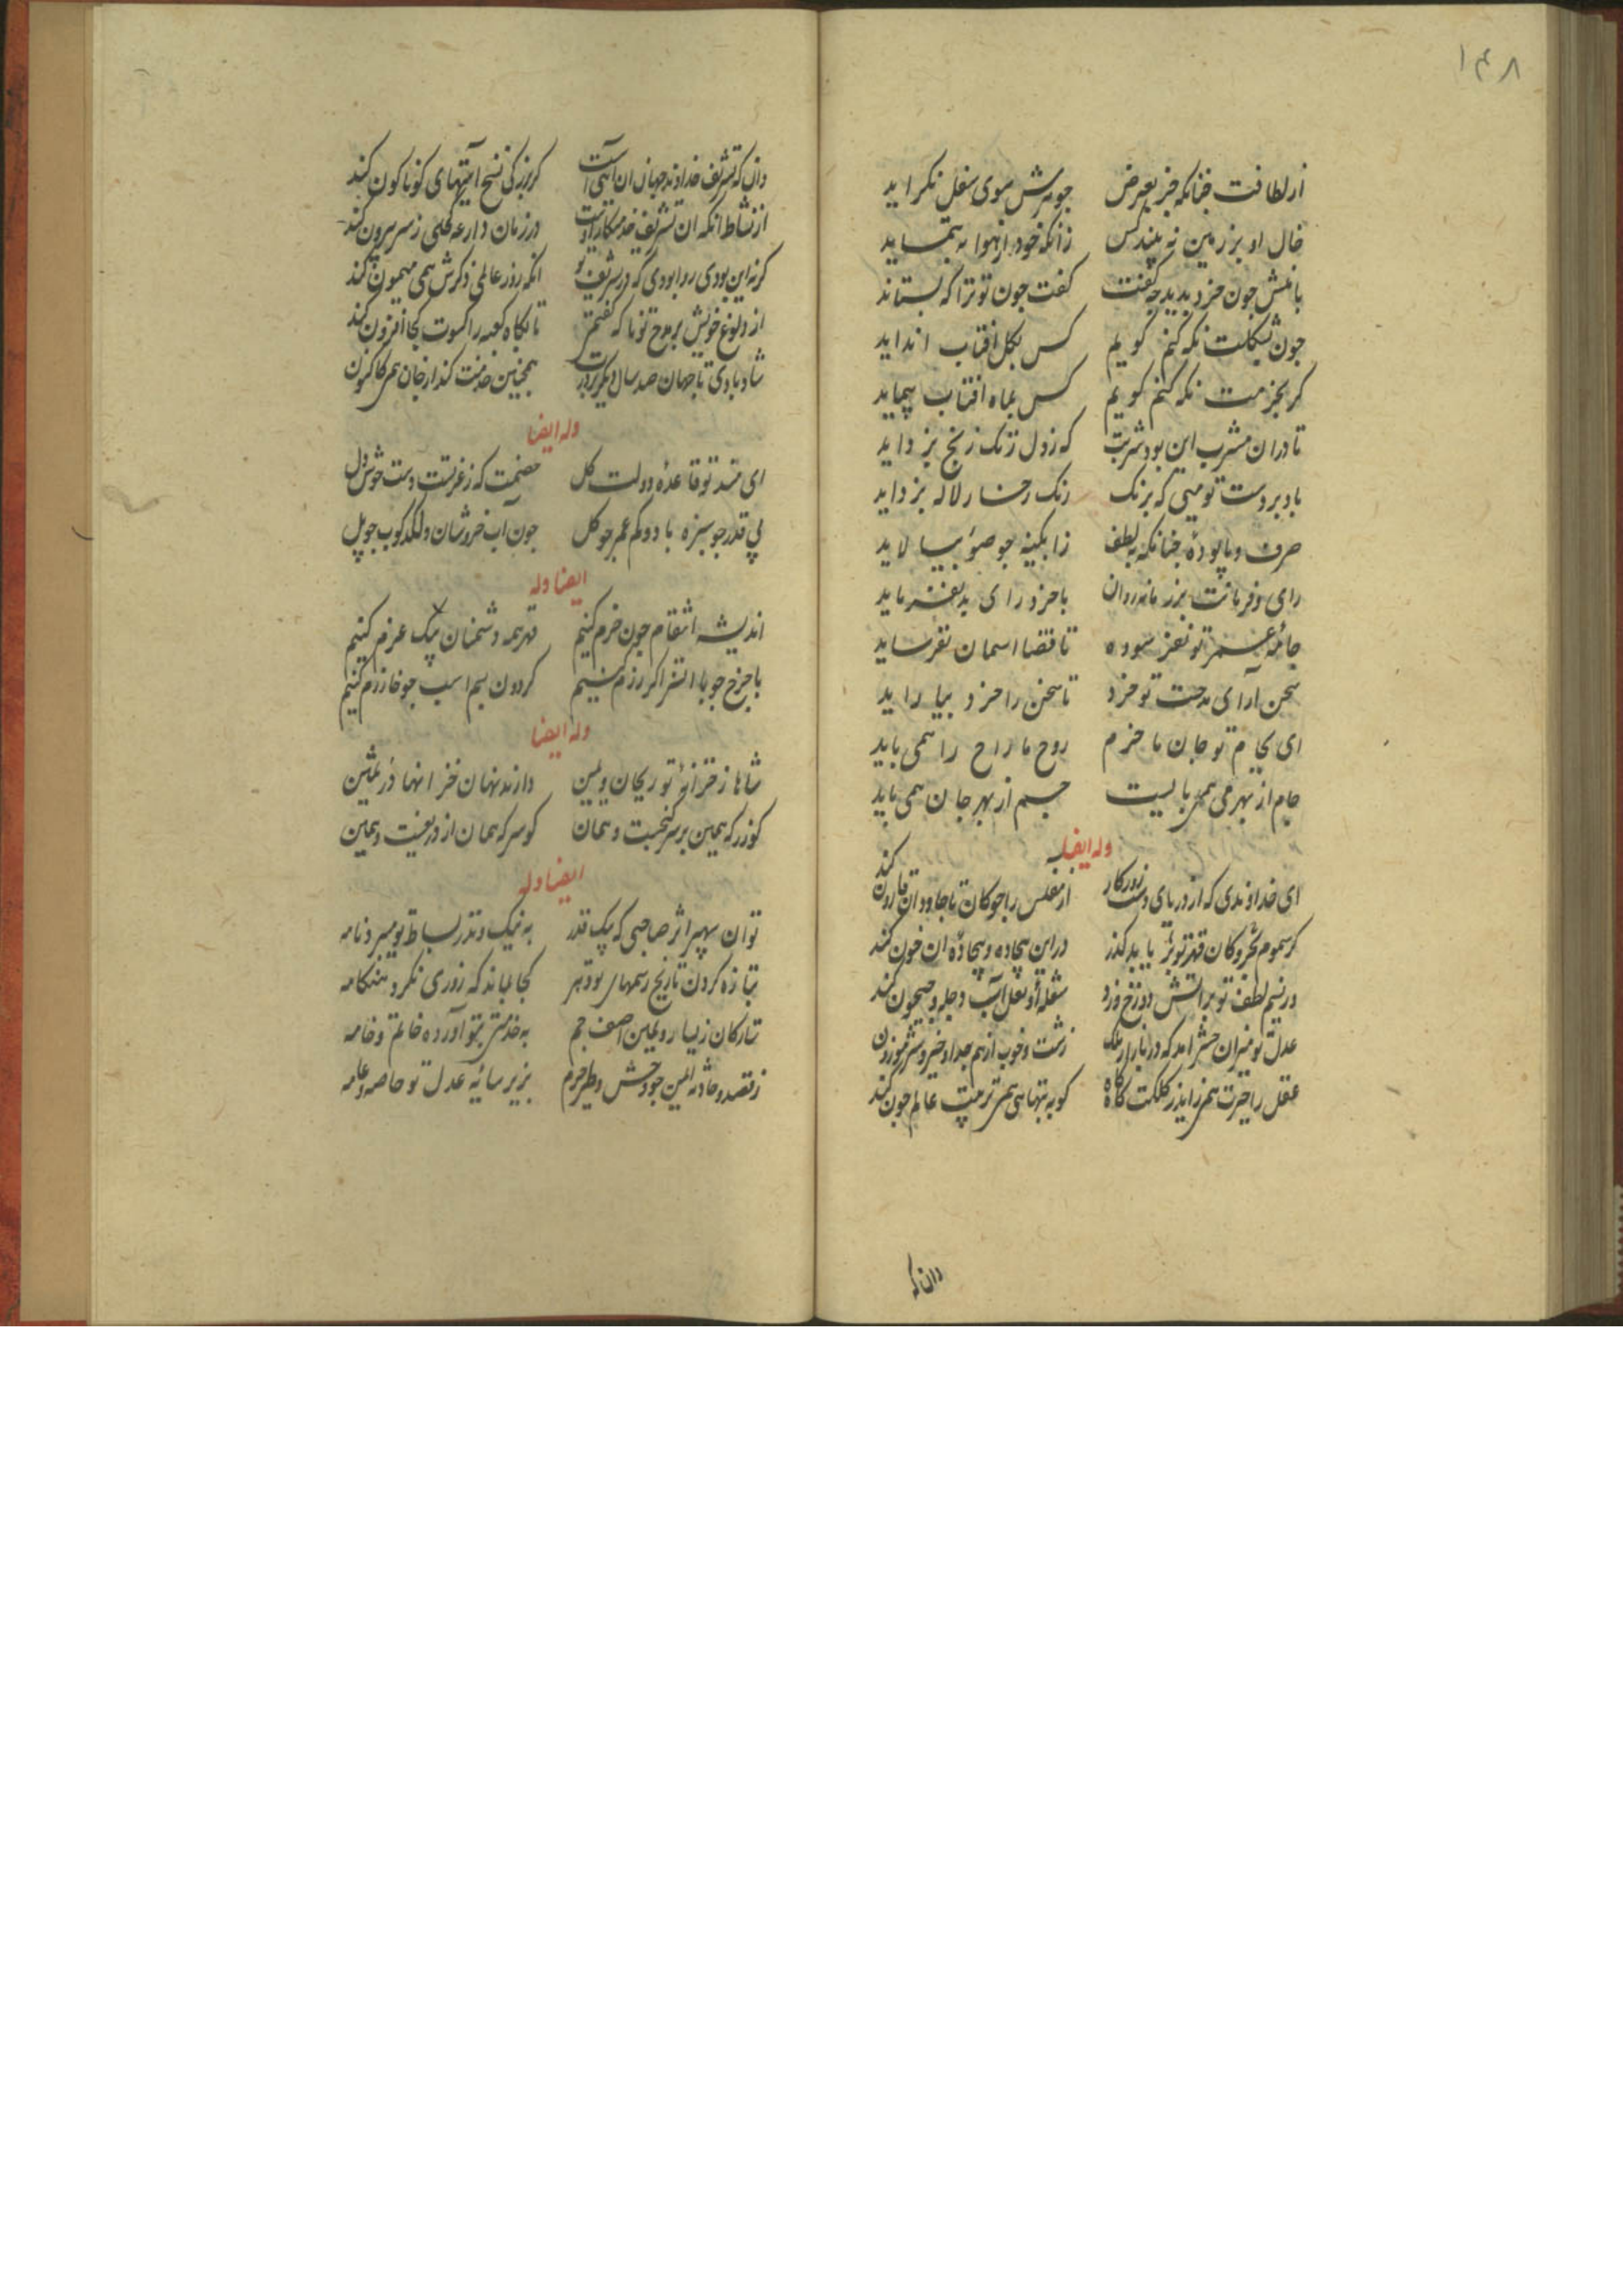 ۱۴۸
از لطافت چنانکه جز بعرض جوهرش سوی سفل نکراید
خال او بر زمین نه بیند کس زانکه خود از هوا به ننماید
باخودش چون خرد بدید چه گفت کفت جون تو ترا که بستاند
جون شکلت نکه کنم کویم کس بکل افتاب انداید
کر بجزمت نکه کنم کویم کس بماه افتاب پیماید
تا دران مشرب این بود شربت که زدل زنک رنج بزداید
باد بر دست تو میی که برنک رنک رخسار لاله بزداید
صرف و پالوده جنانکه بلطف زابکینه جو ضوء بیالاید
رای و فرمانت بر زمانه روان با خرد رای بد نفرماید
جامهٔ عمر تو نفرسوده تا قضا اسمان نفرساید
سخن آرای مدحت تو خرد تا سخن را خرد بیاراید
ای بجام تو جان ما خرم روح ما راح را همی باید
جام از بهر می همی بایست جسم از بهر جان همی باید
وله ایضا
ای خداوندی که از دریای دستت روزکار از مفلس را جو کان تا جاودان قارون کند
کر سموم قهر تو بر بحر و کان یابد کذر در این بیجاده و بیجادهٔ ان خون کند
ور نسیم لطف تو بر اتش دوزخ وزد شعلهٔ او فعل آب دجله و جیحون کند
عدل تو میزان حشر امد که در بازار ملک زشت و خوب از هم جدا و خیر و شر موزون کند
عقل را حیرت همی زاید ز کلکت کاه کاه کو به تنهایی همی ترتیب عالم جون کند
دان که
دان که تشریف خداوند جهان ان آیتی است کز بزرکی نسخ آیتهای کوناکون کند
از نشاط انکه ان تشریف خدمتکار اوست در زمان دراعه فلکی ز سر بیرون کند
کرنه این بودی روا بودی که در تشریف تو انکه روز عالمی ذکرش همی میمون کند
از ولوغ خویش بر مدح تو ما که کفتم تا نکاه کعبه را کسوت کجا افزون کند
شاد بادی تا جهان صد سال دیکر بر درت همجنین خدمت کند از جان همی کاکنون کند
وله ایضا
ای مسند تو قاعدهٔ دولت کل خصمت که ز غم تست دست خوش دل
پی قدر جو سبزه با دو کم عمر جو کل جون آب خروشان و لکدکوب جو پل
ایضا وله
اندیشه انتقام جون خرم کنیم قهر همه دشمنان بیک عزم کنیم
با جرخ جو با انتقر اکر رزم کنیم کردون بسم اسب جو خوارزم کنیم
وله ایضا
شاها ز خزانهٔ تو ریحان و یمین دارند نهان خزانها در ثمین
کوزر که یمین بر سر کنجست و همان کوسر که همان از در تغیت و همین
ایضا وله
توان سپهر اثر صاحبی که پیک قدر به نیک و بد ز بساط تو میبرد نامه
بتازه کردن تاریخ رسمهای تو دهر کجا بماند که روزی نکرد هنکامه
تبارکان ز یسار و یمین اصف جم به خدمت بتو آورده خاتم و خامه
ز قصد حادثه ایمن جو وحش و طیر حرم بزیر سایهٔ عدل تو خاصه و عامه